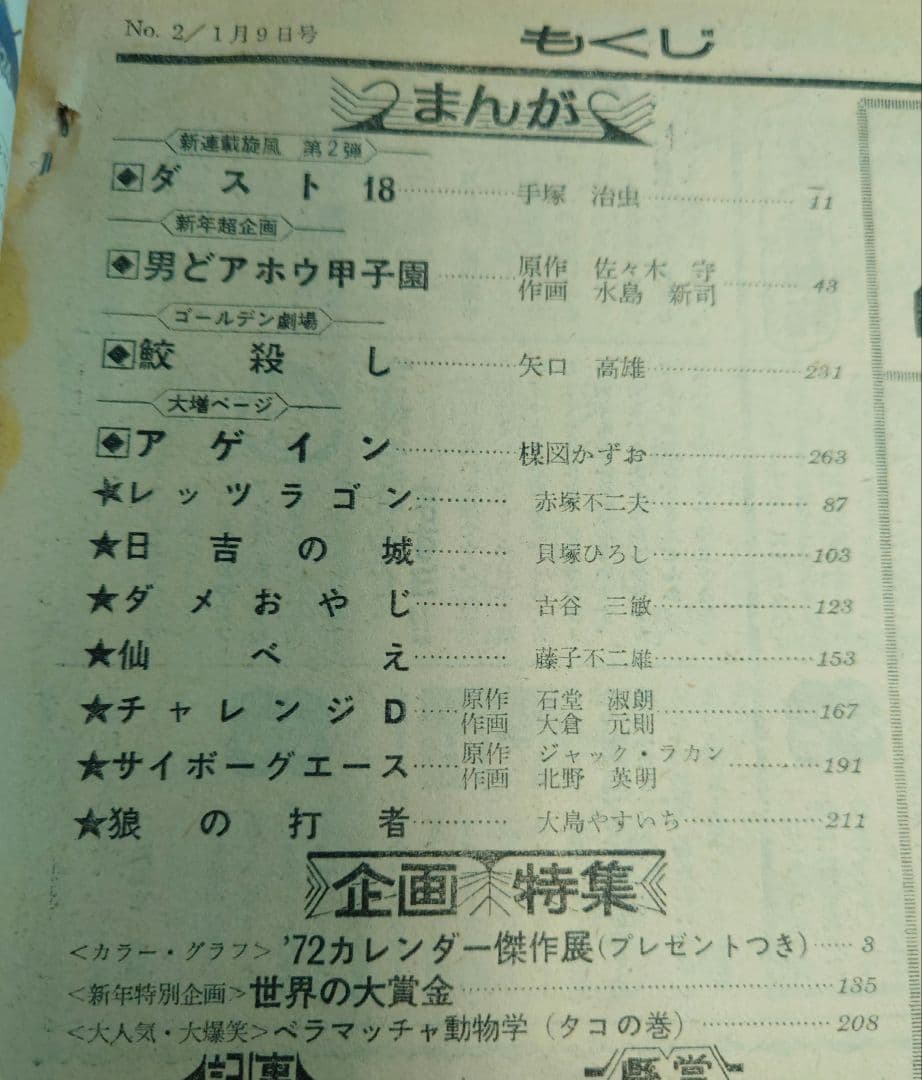 No. 2/1月9日号
もくじ
まんが
新連載旋風 第2弾
ダスト18 手塚 治虫 11
新年超企画
男どアホウ甲子園 原作 佐々木 守
作画 水島 新司 43
ゴールデン劇場
鮫殺し 矢口 高雄 231
大増ページ
アゲイン 楳図かずお 263
★レッツラゴン 赤塚不二夫 87
★日吉の城 貝塚ひろし 103
★ダメおやじ 古谷 三敏 123
★仙べえ 藤子不二雄 153
★チャレンジD 原作 石堂 淑朗
作画 大倉 元則 167
★サイボーグエース 原作 ジャック・ラカン
作画 北野 英明 191
★狼の打者 大島やすいち 211
企画特集
<カラー・グラフ>'72カレンダー傑作展(プレゼントつき) 3
<新年特別企画>世界の大賞金 135
<大人気・大爆笑>ベラマッチャ動物学(タコの巻) 208
記事
懸賞